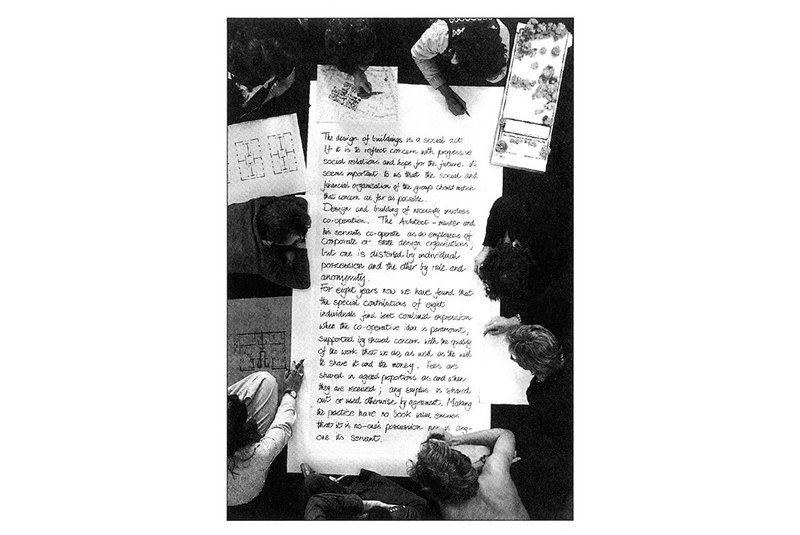 The design of buildings is a social act
If it is to reflect concern with progressive
social relations and hope for the future it
seems important to us that the social and
financial organisation of the group should match
that concern as far as possible.
Design and building of necessity involves
co-operation. The Architect-master and
his servants co-operate as do employees of
corporate or state design organisations,
but one is distorted by individual
possession and the other by rule and
anonymity.
For eight years now we have found that
the special contributions of eight
individuals find best combined expression
when the co-operative idea is paramount,
supported by shared concern with the quality
of the work that we do, as well as the will
to share it and the money. Fees are
shared in agreed proportions as and when
they are received; any surplus is shared
out or used otherwise by agreement. Making
the practice have no book value ensures
that it is no-one's possession nor is any-
one its servant.